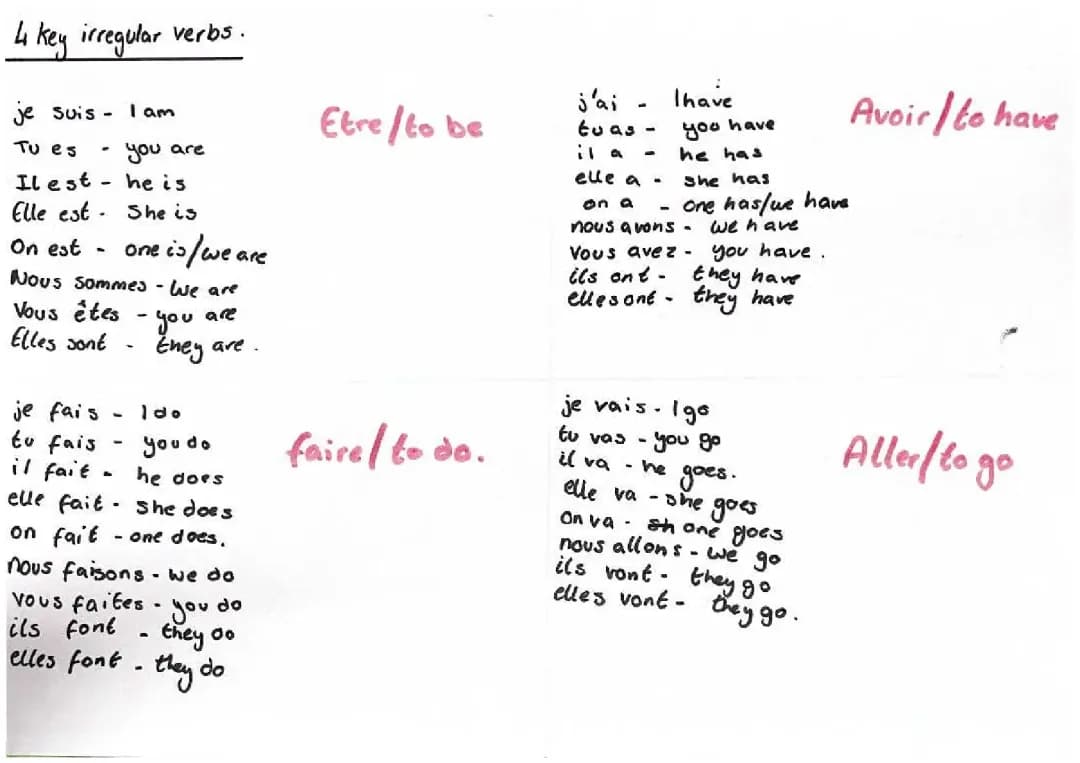 4 key irregular verbs.
je suis - I am
Tu es - you are
Il est - he is
Elle est - She is
On est - one is/we are
Nous sommes - We are
Vous êtes - you are
Elles sont - they are.
Etre/to be
j'ai - I have
tu as - you have
il a - he has
elle a - she has
on a - one has/we have
nous avons - we have
Vous avez - you have.
ils ont - they have
elles ont - they have
Avoir/to have
je fais - I do
tu fais - you do
il fait - he does
elle fait - she does
on fait - one does.
nous faisons - we do
vous faites - you do
ils font - they do
elles font - they do
faire/to do.
je vais - I go
tu vas - you go
il va - he goes.
elle va - she goes
On va - one goes
nous allons - we go
ils vont - they go
elles vont - they go.
Aller/to go